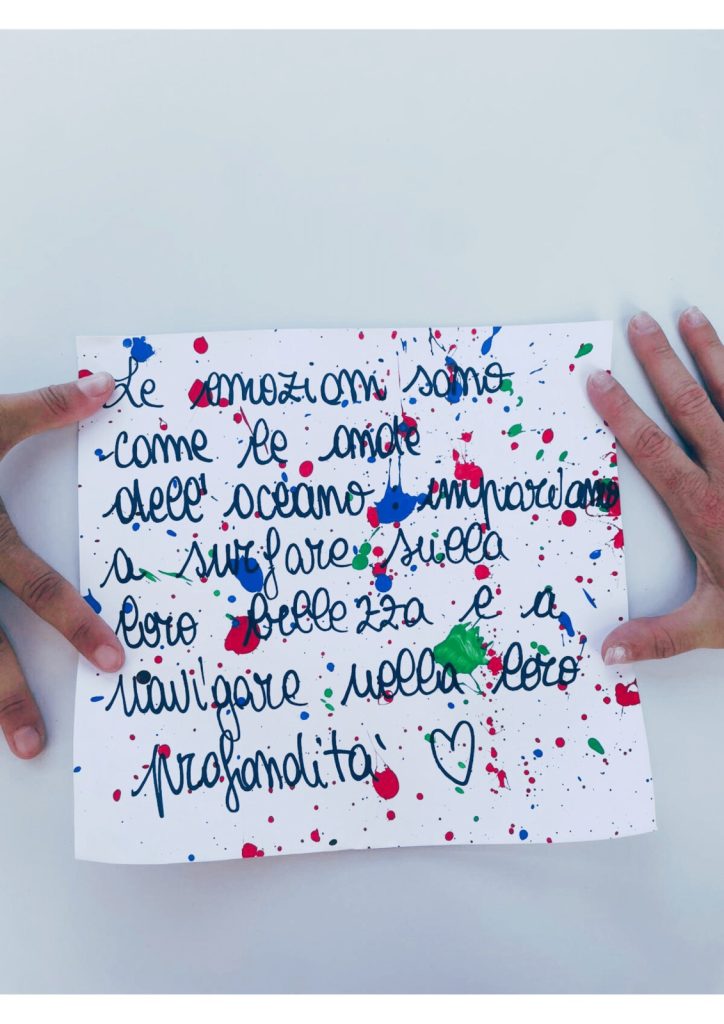 Le emozioni sono
come le onde
dell'oceano impariamo
a surfare sulla
loro bellezza e a
navigare nella loro
profondità ♡